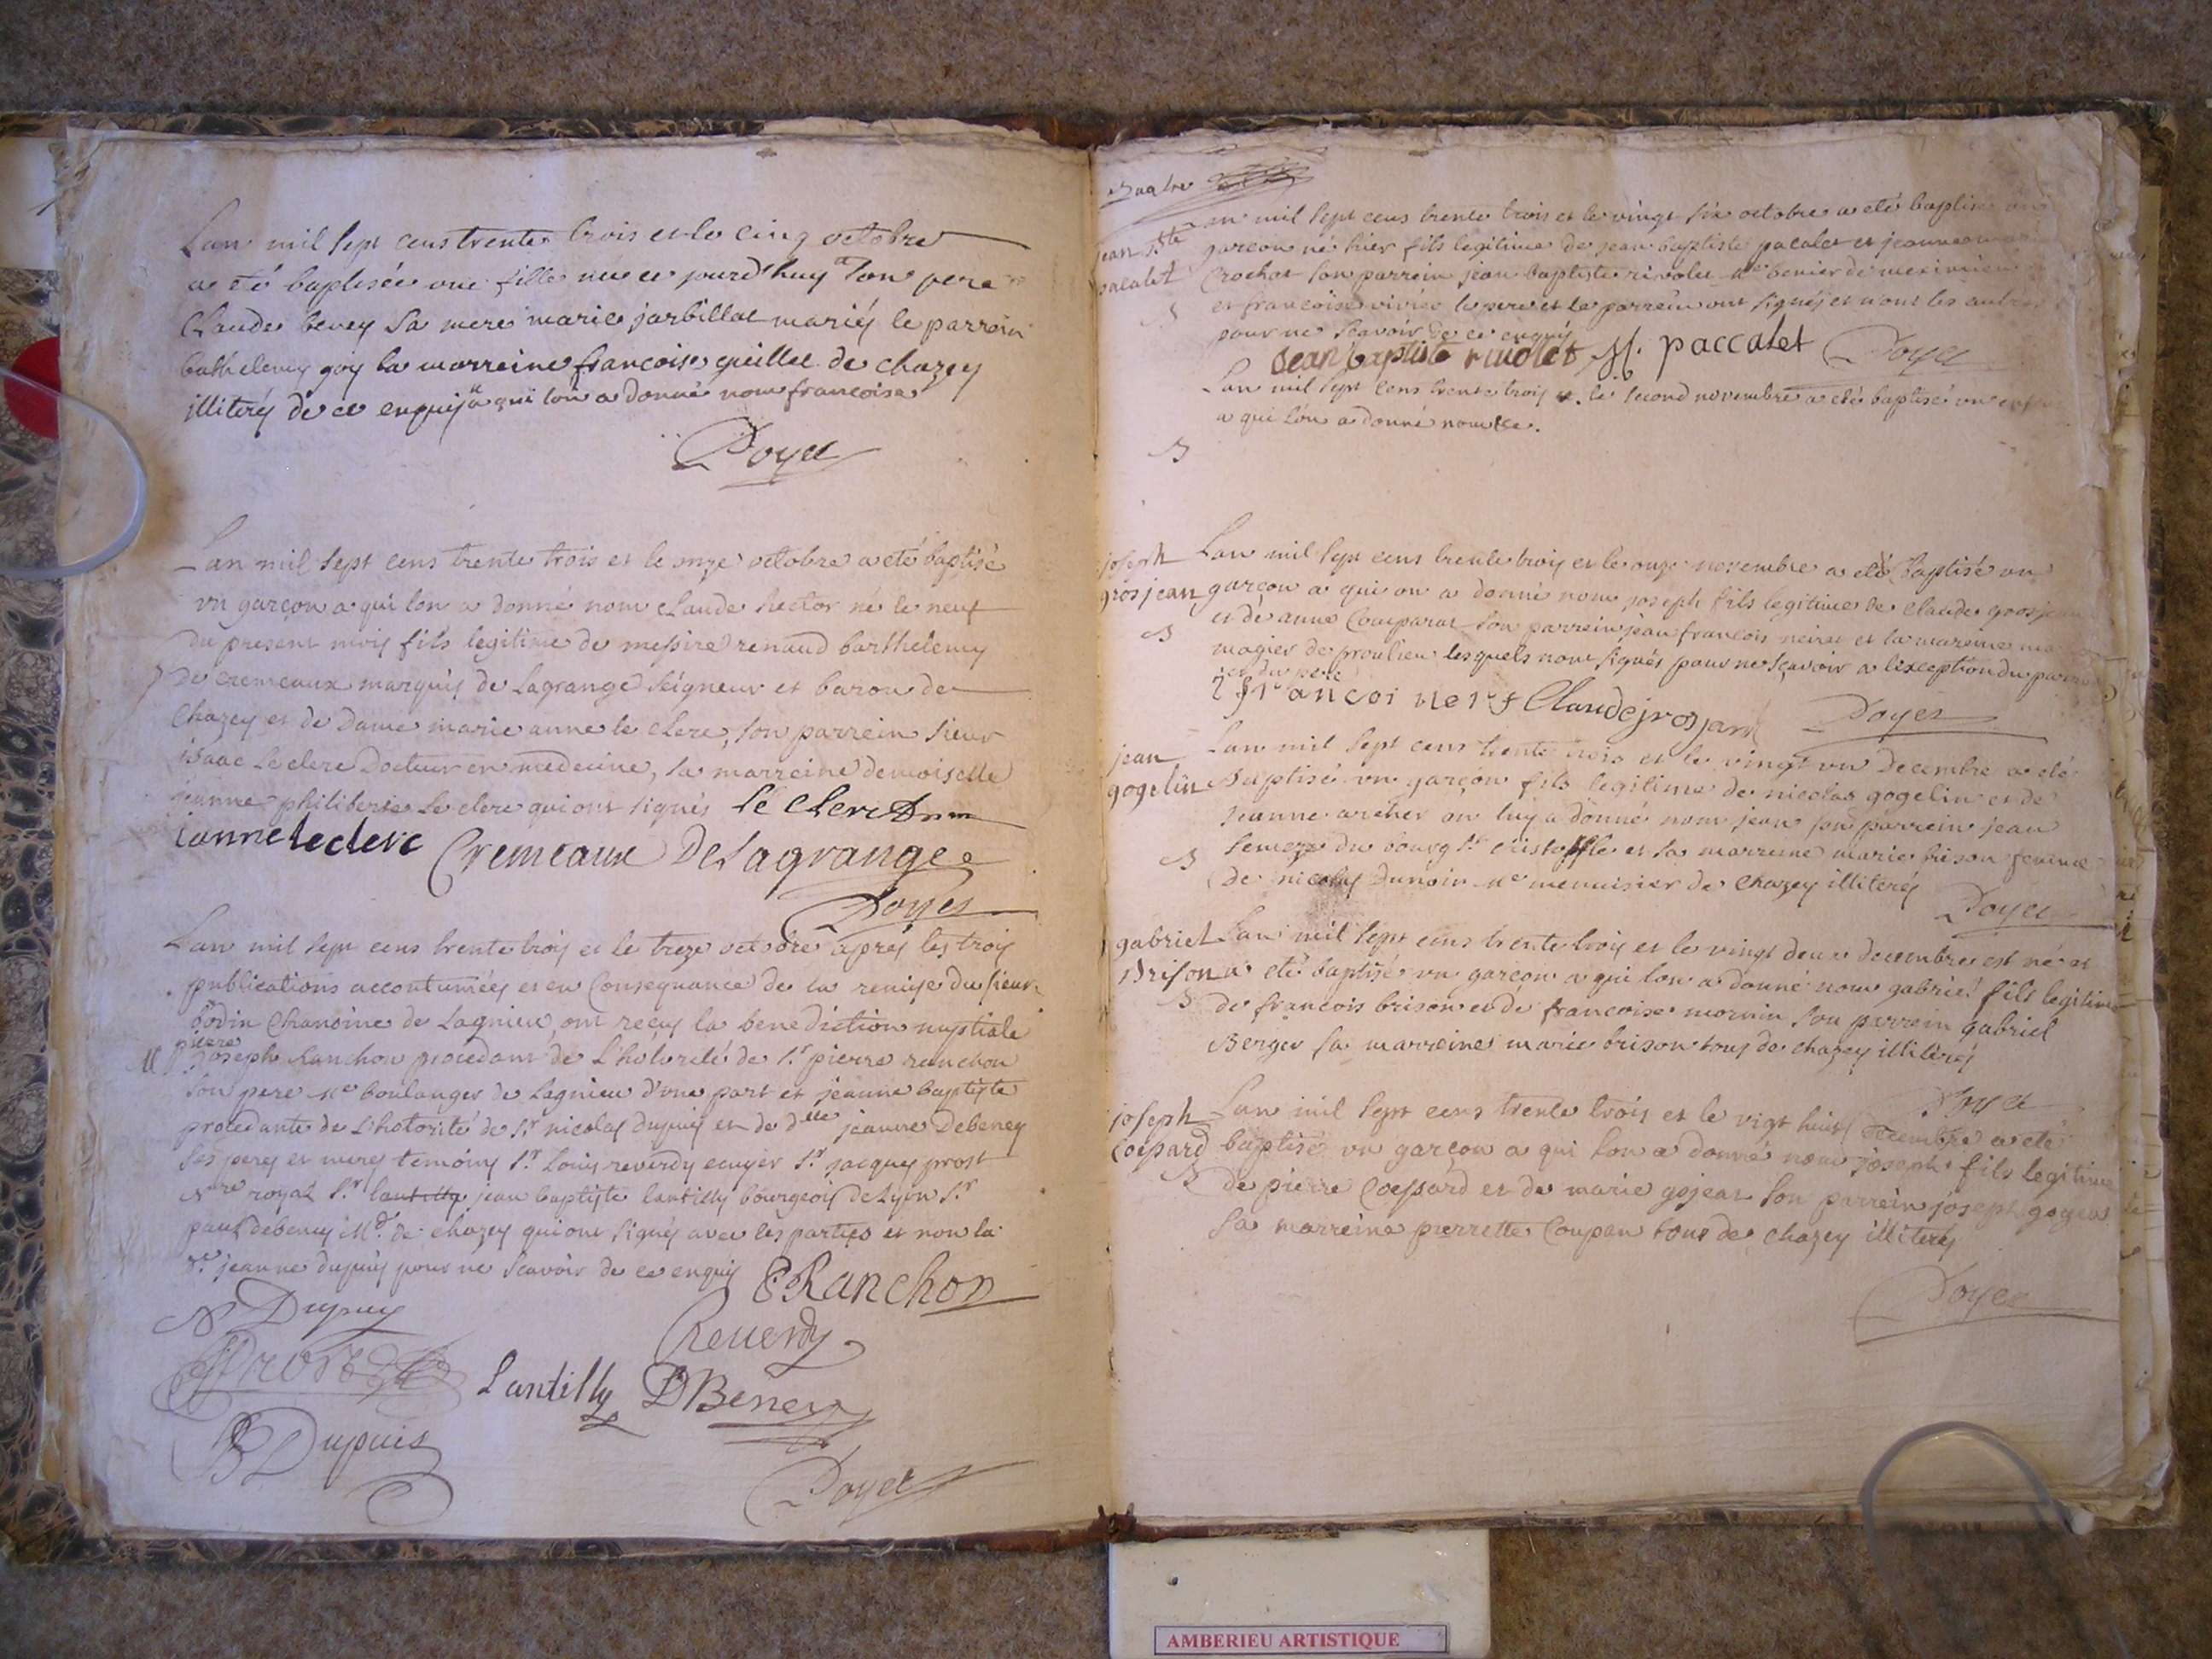 Lan mil sept cens trente trois et le cinq octobre
a eté baptisée une fille née ce jourd'huy son pere
Claude bevey sa mere marie jarbillat mariés le parrein
bathelemy goy la marreine francoise de chazey
illiterés de ce enquis a qui lon a donné nom francoise
Doyet
Lan mil sept cens trente trois et le onze octobre a eté baptisé
un garçon a qui lon a donné nom claude hector né le neuf
du present mois fils legitime de messire renaud barthelemy
de cremeaux marquis de Lagrange seigneur et baron de
Chazey et de Dame marie anne le clerc, son parrein sieur
isaac Le clerc Docteur en medecine, sa marreine demoiselle
jeanne philiberte Le clerc qui ont signés Le Clerc
janne leclerc Cremeaux De Lagrange
Doyet
Lan mil sept cens trente trois et le treze octobre apres les trois
publications accoutumées et en Consequance de la remise du sieur
bodin Chanoine de Lagnieu ont reçus la benediction nuptiale
pierre
M joseph Ranchon procedant de L'hotorité de Sr pierre ranchon
son pere Me boulanger de Lagnieu d'une part et jeanne baptiste
procedante de L'hotorité de Sr nicolas dupuis et de dlle jeanne Debeney
ses peres et meres temoins Sr Louis reverdy ecuyer Sr jacques prost
Nre royal Sr lantilly jean baptiste lantilly bourgeois de Lyon Sr
paul debeney Md de chazey qui ont signés avec les parties et non la
jeanne dupuis pour ne scavoir de ce enquis P Ranchon
N Dupuy
Reverdy
Prost
Lantilly DBeney
B Dupuis
Doyet
an mil sept cens trente trois et le vingt six octobre a eté baptisé un
jean bte garcon né hier fils legitime de jean baptiste pacalet et jeanne
pacalet Crochat son parrein jean baptiste rivolet Me de meximieu
et francoise le pere et le parrein ont signés et non les autres
B
pour ne scavoir de ce enquis
Jean baptiste rivolet paccalet Doyet
Lan mil sept cens trente trois et le second novembre a eté baptisé un
a qui lon a donné nom
B
joseph Lan mil sept cens trente trois et le onze novembre a eté baptisé un
grosjean garçon a qui on a donné nom joseph fils legitime de claude grosjean
et de anne Comparat son parrein jean francois neiret et la mareine
B
magier de proulieu lesquels nont signés pour ne sçavoir a lexception du parrein
et du pere
francoi Claude jrosjan Doyet
jean Lan mil sept cens trente trois et le vingt un Decembre a eté
gogelin Baptisé un garçon fils legitime de nicolas gogelin et de
jeanne archer on luy a donné nom jean son parrein jean
du bourg St cristoffle et sa marreine marie brison femme
B
de nicolas dunoir Me menuisier de Chazey illiterés
Doyet
gabriel Lan mil sept cens trente trois et le vingt deux decembre est né et
Brison a eté baptisé un garcon a qui lon a donné nom gabriel fils legitime
B de francois brison et de francoise mornin son parrein gabriel
Berger sa marreine marie brison tous de chazey illiterés
Doyet
joseph Lan mil sept cens trente trois et le vigt huit Decembre a eté
Coepard baptisé un garçon a qui lon a donné nom joseph fils legitime
B de pierre Coessard et de marie gojeat son parrein joseph
sa marreine pierrette Coupan tous de chazey illiterés
Doyet
AMBERIEU ARTISTIQUE